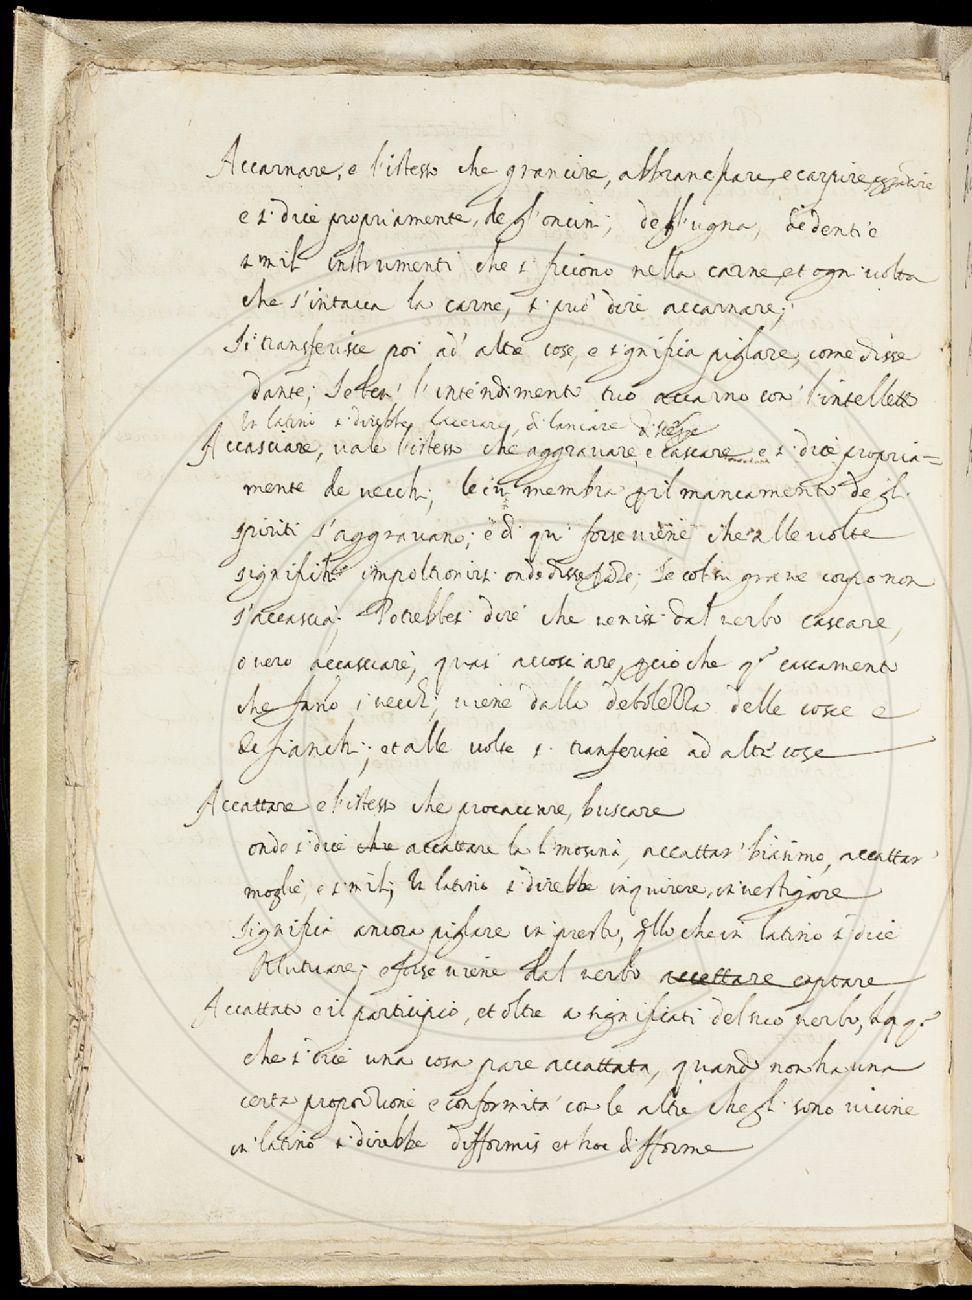 Accarnare, e l'istesso che grancire, abbrancare, e carpire
e si dice propriamente, de gl'oncini, dell'ugna, de denti e
simili instrumenti che si ficcono nella carne, et ogni volta
che s'intacca la carne, si può dire accarnare,
Si transferisce poi ad' altre cose, e significa piglare, come disse
dante; Se ben' l'intendimento tuo accarno con l'intelletto
In latino si direbbe lacerare, dilaniare
Accasciare, vale l'istesso che aggravare, e cascare e si dice propria=
mente de vecchi, le cui membra p il mancamento de gl
spiriti s'aggravano; e di qui forse viene che alle volte
significhi impoltronirsi onde disse Se col su grave corpo non
s'accascia; Potrebbesi dire che venissi dal verbo cascare,
overo accasciare, quasi accosciare, pcioche q.o cascamento
che fano i vecchi, viene dalla debolezza delle coscie e
de fianchi; et alle volte si tranferisce ad altre cose
Accattare e l'istesso che procacciare, buscare
onde si dice che accattare la limosina, accattar' biasimo, accattar'
moglie, e simili; In latino si direbbe inquirere, investigare
Significa ancora piglare in presto, qllo che in latino si dice
Mutuare; e forse viene dal verbo accettare captare
Accattato e il participio, et oltre a significati del suo verbo,
che si dice una cosa pare accattata, quando non ha una
certa proportione e conformità con le altre che gli sono vicine
in latino si direbbe difformis et hoc difforme